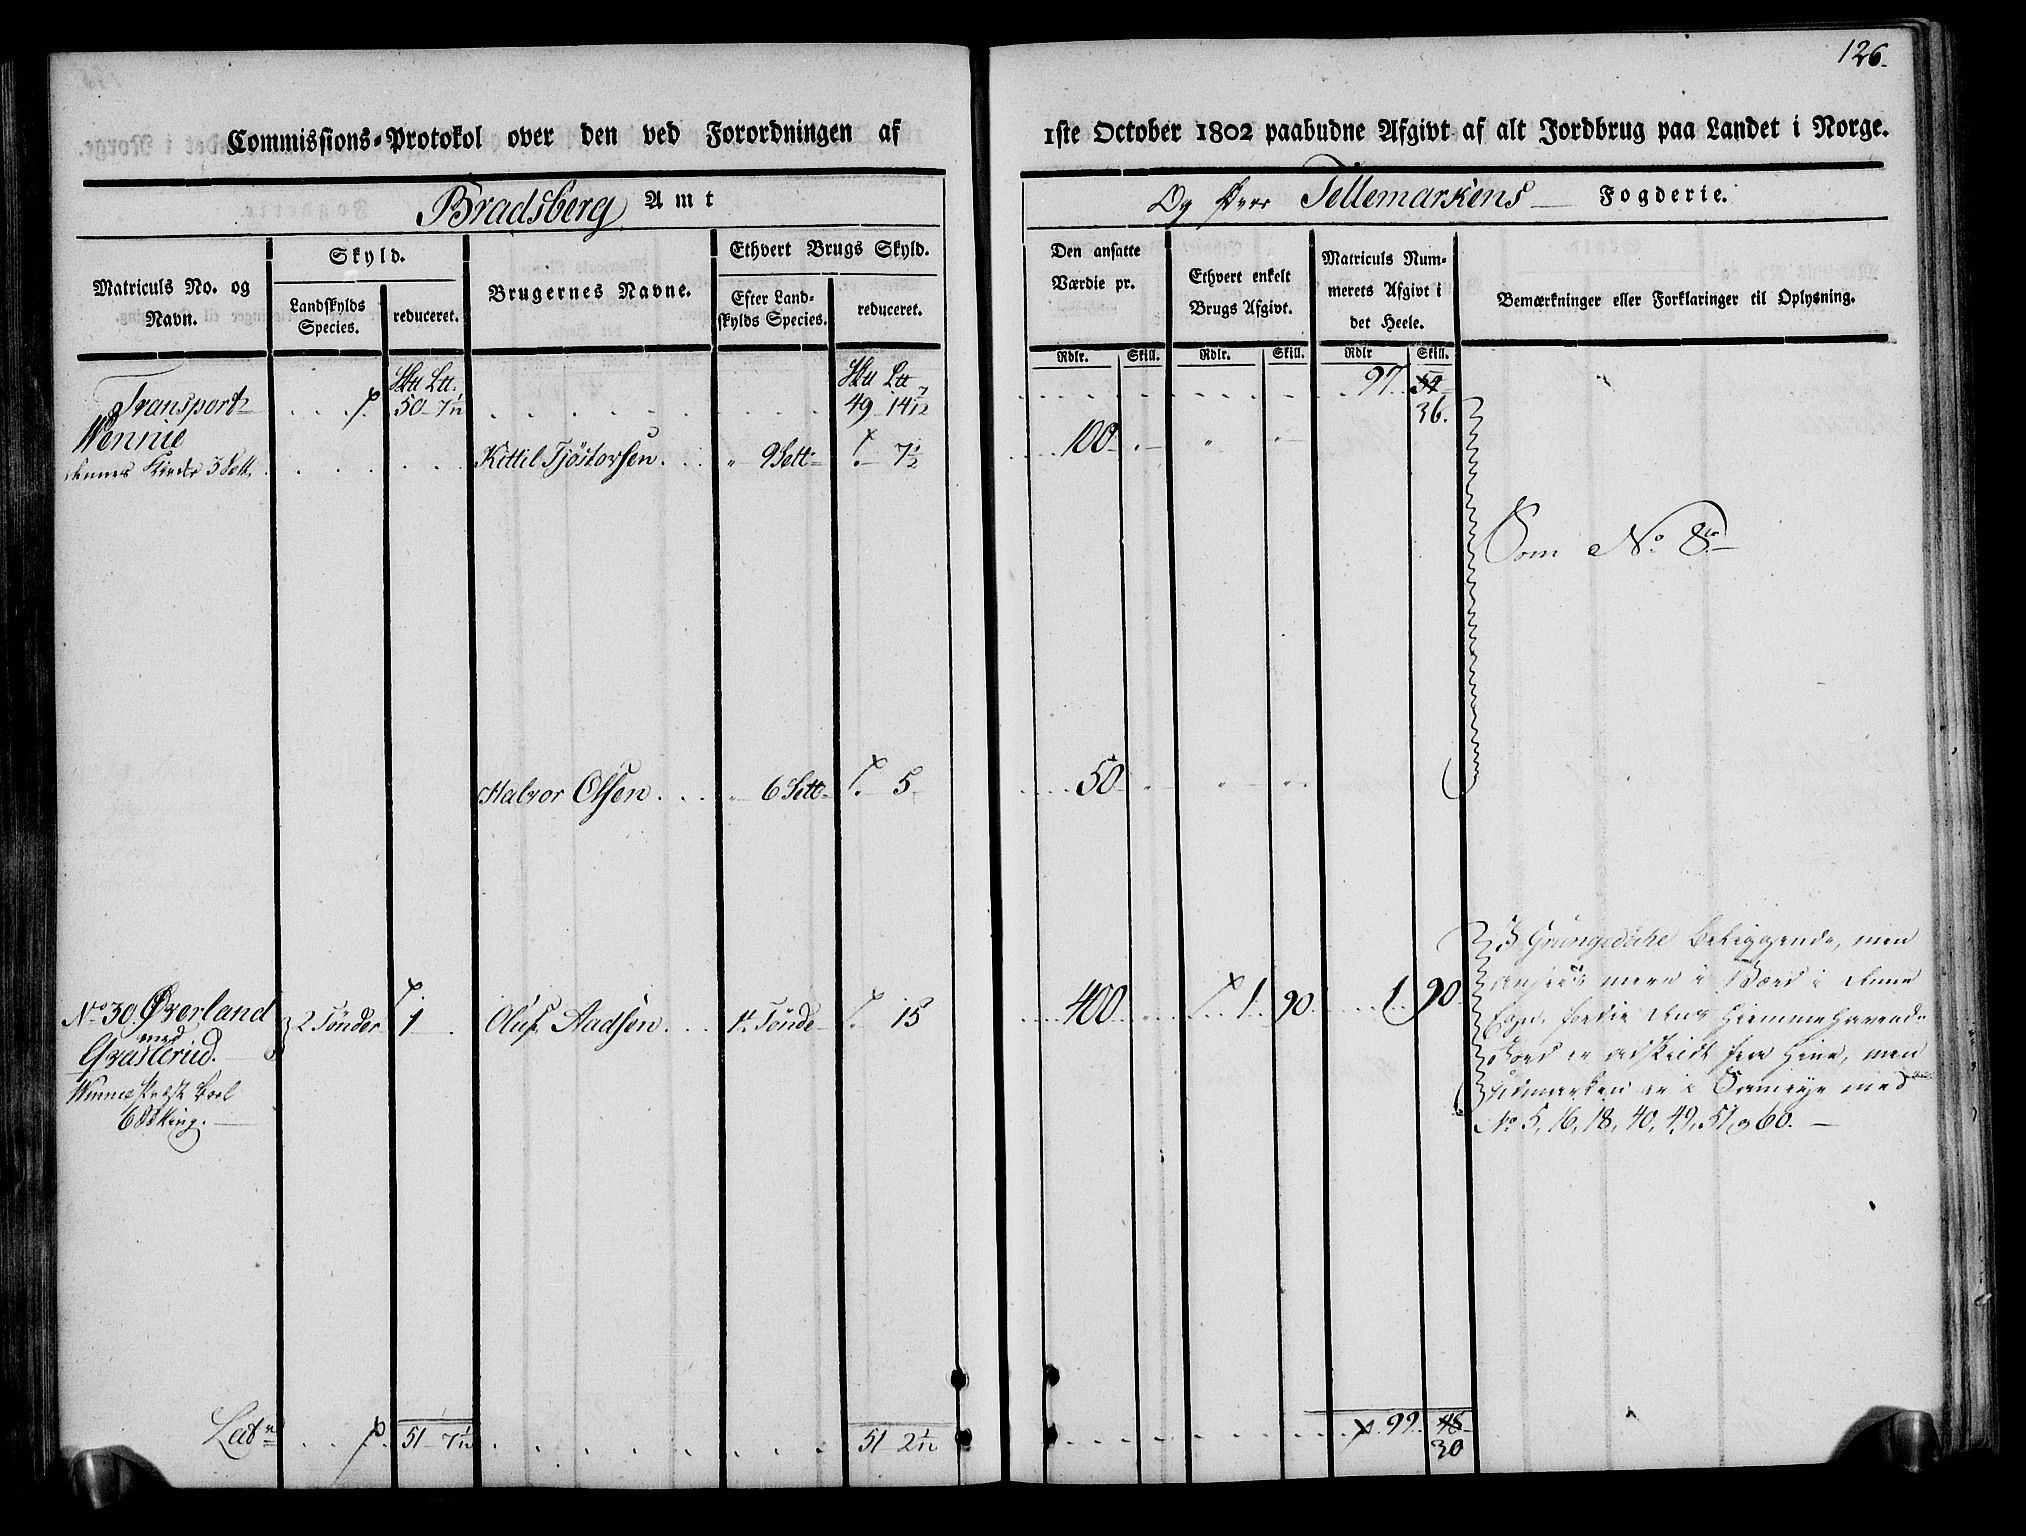 126.
Commissions-Protokol over den ved Forordningen af
1ste October 1802 paabudne Afgivt af alt Jordbrug paa Landet i Norge.
Bradsberg Amt
Og Tellemarkens Fogderie.
Matriculs No. og Navn.
Skyld.
Landskylds Species.
reduceret.
Brugernes Navne.
Ethvert Brugs Skyld.
Efter Landskylds Species.
reduceret.
Den ansatte Værdie pr.
Ethvert enkelt Brugs Afgivt.
Matriculs Nummerets Afgivt i det Heele.
Bemærkninger eller Forklaringer til Oplysning.
Rdlr. Skill. Rdlr. Skill. Rdlr Skill.
Transport 50 7 1/12 49 14 7/12 97 36.
Wennie
Kittil Tjöstorsen 9 Sett 7 1/2 100
Som No. 8
Halvor Olsen 6 Sett 5 50
No. 30 Øverland 2 Tönder 1 Oluf Aadsen 1 Tönde 15 400 1 90 1 90
med
Qvasterud.
I Grungedahl beliggende, men
men
No 5, 16, 18, 40, 49, 51, 60.
Lat 51 7 1/12 51 2 1/12 99 30